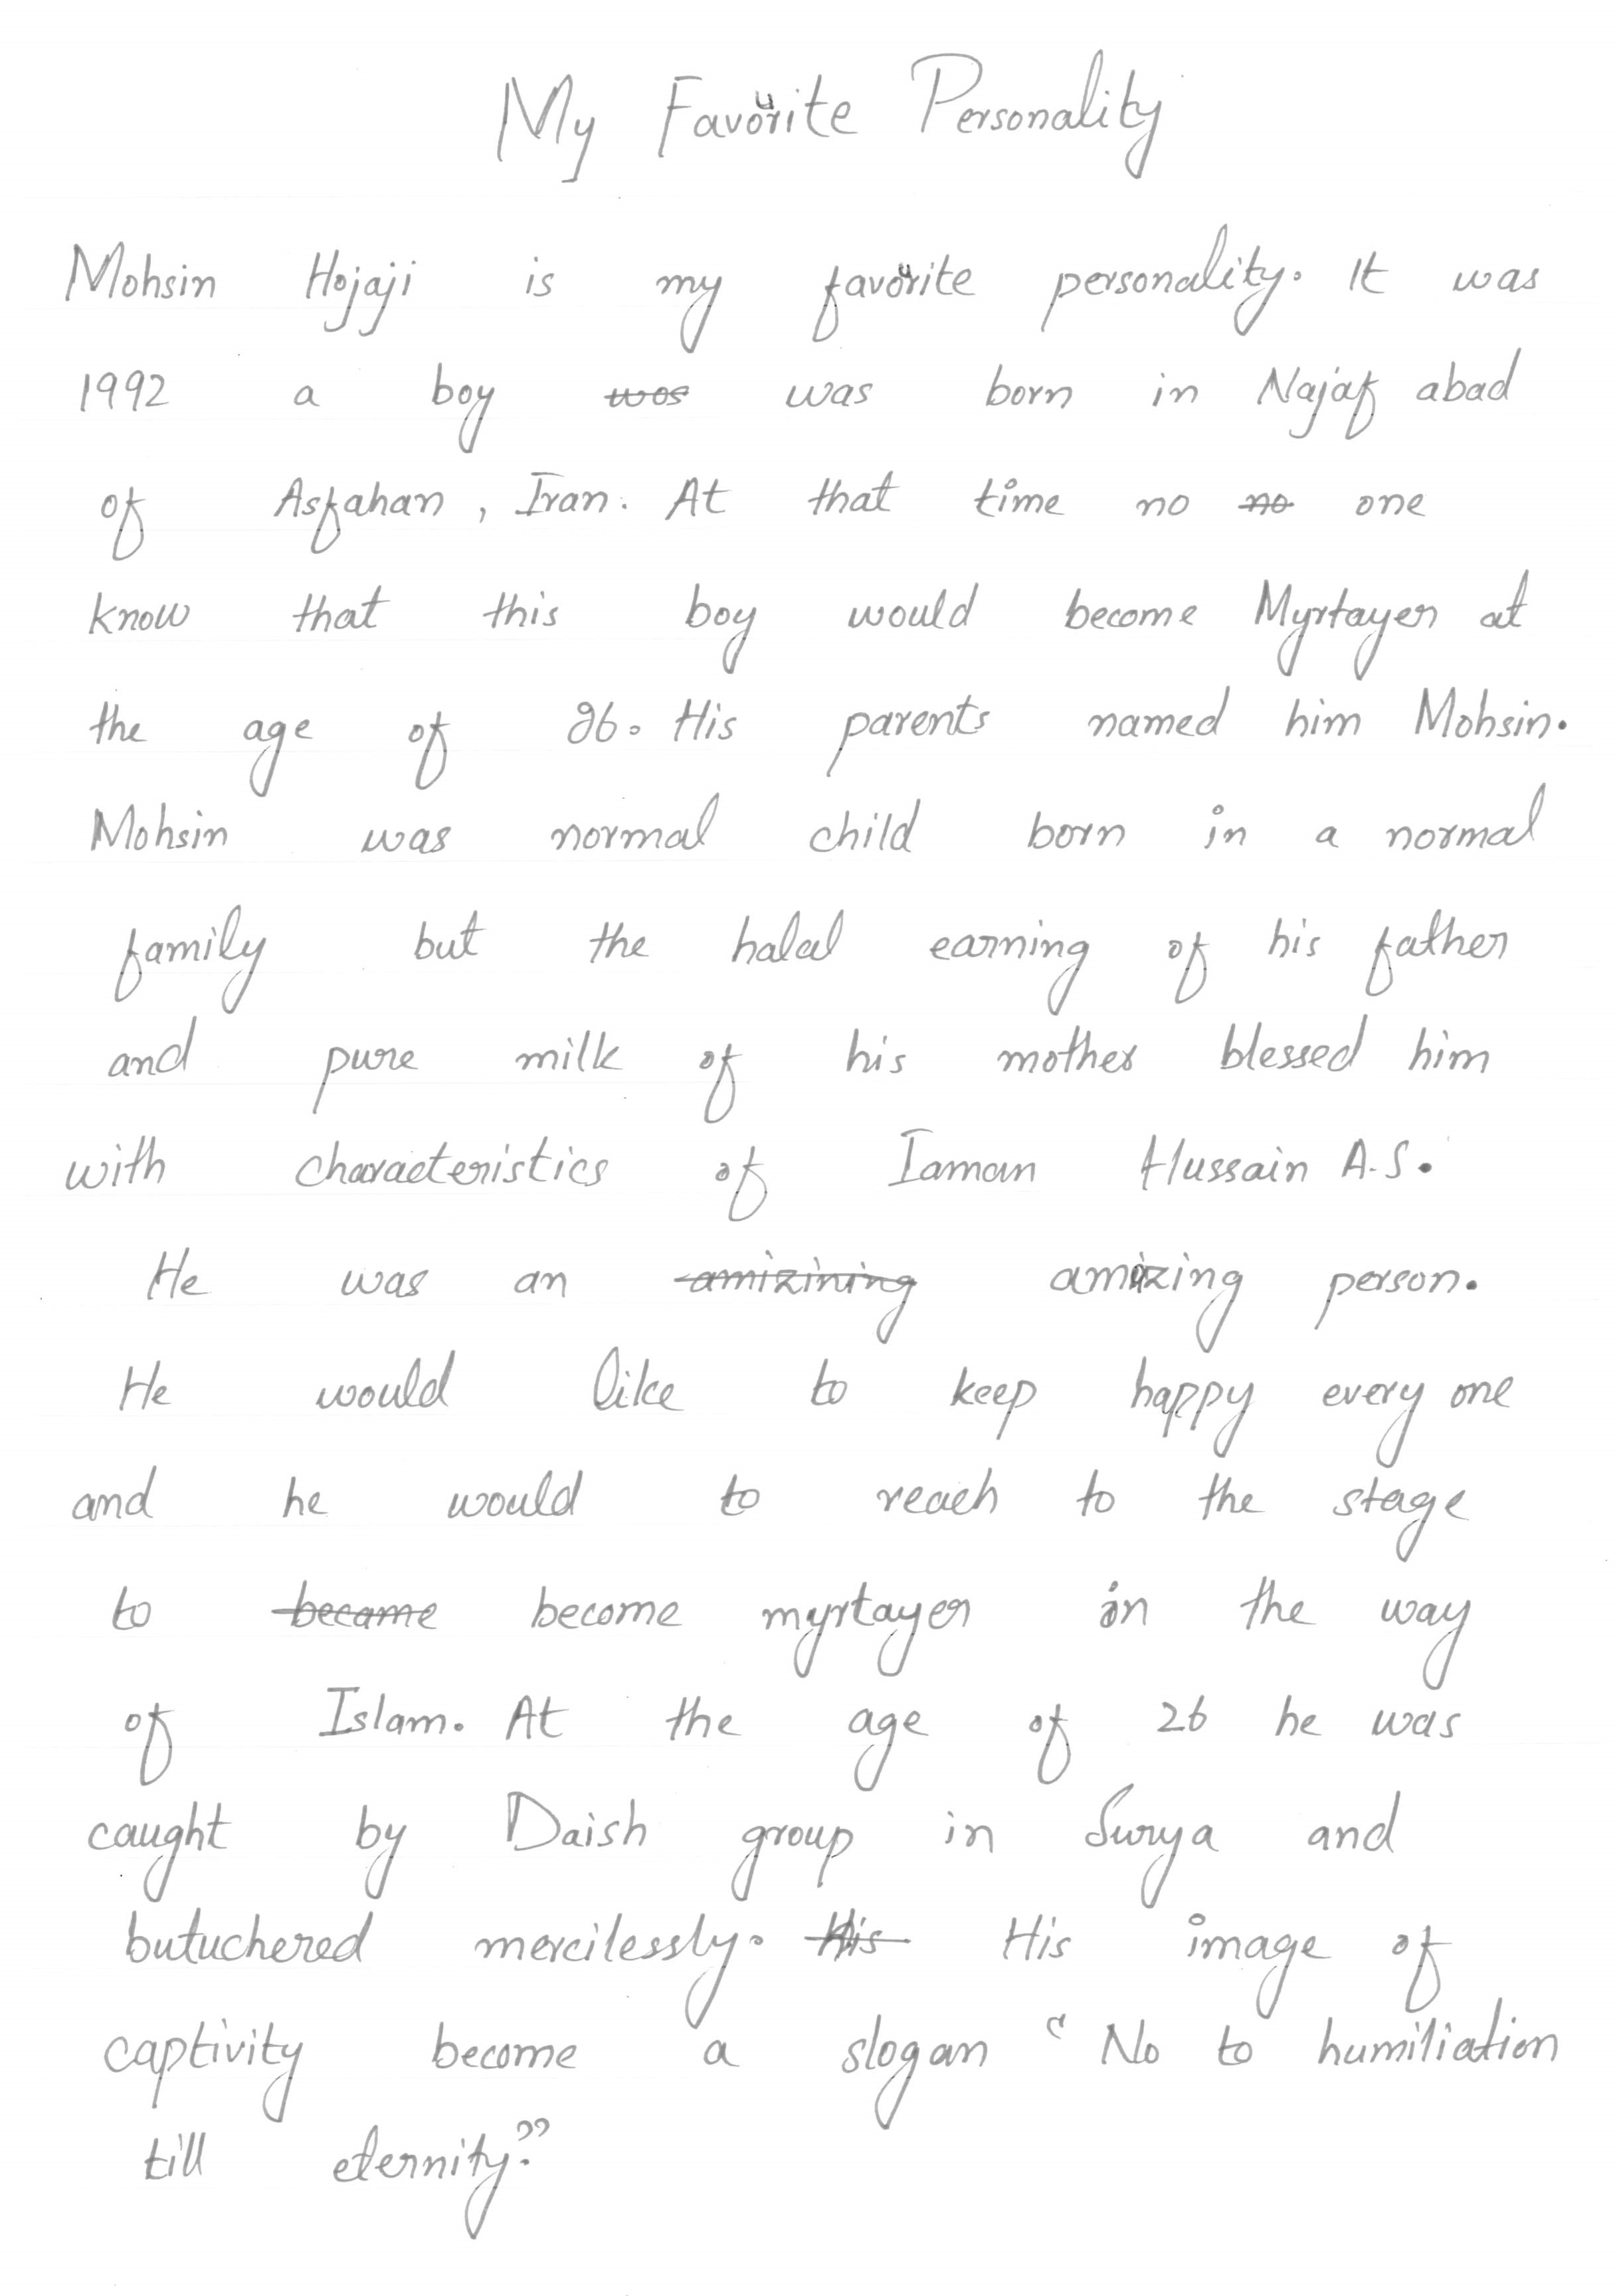 My Favourite Personality
Mohsin Hojaji is my favourite personality. It was
1992 a boy was was born in Najaf abad
of Asfahan, Iran. At that time no no one
know that this boy would become Myrtayer at
the age of 26. His parents named him Mohsin.
Mohsin was normal child born in a normal
family but the halal earning of his father
and pure milk of his mother blessed him
with characteristics of Iamam Hussain A.S.
He was an amizining amizing person.
He would like to keep happy every one
and he would to reach to the stage
to became become myrtayer in the way
of Islam. At the age of 26 he was
caught by Daish group in Surya and
butuchered mercilessly. His His image of
captivity become a slogan “No to humiliation
till eternity.”